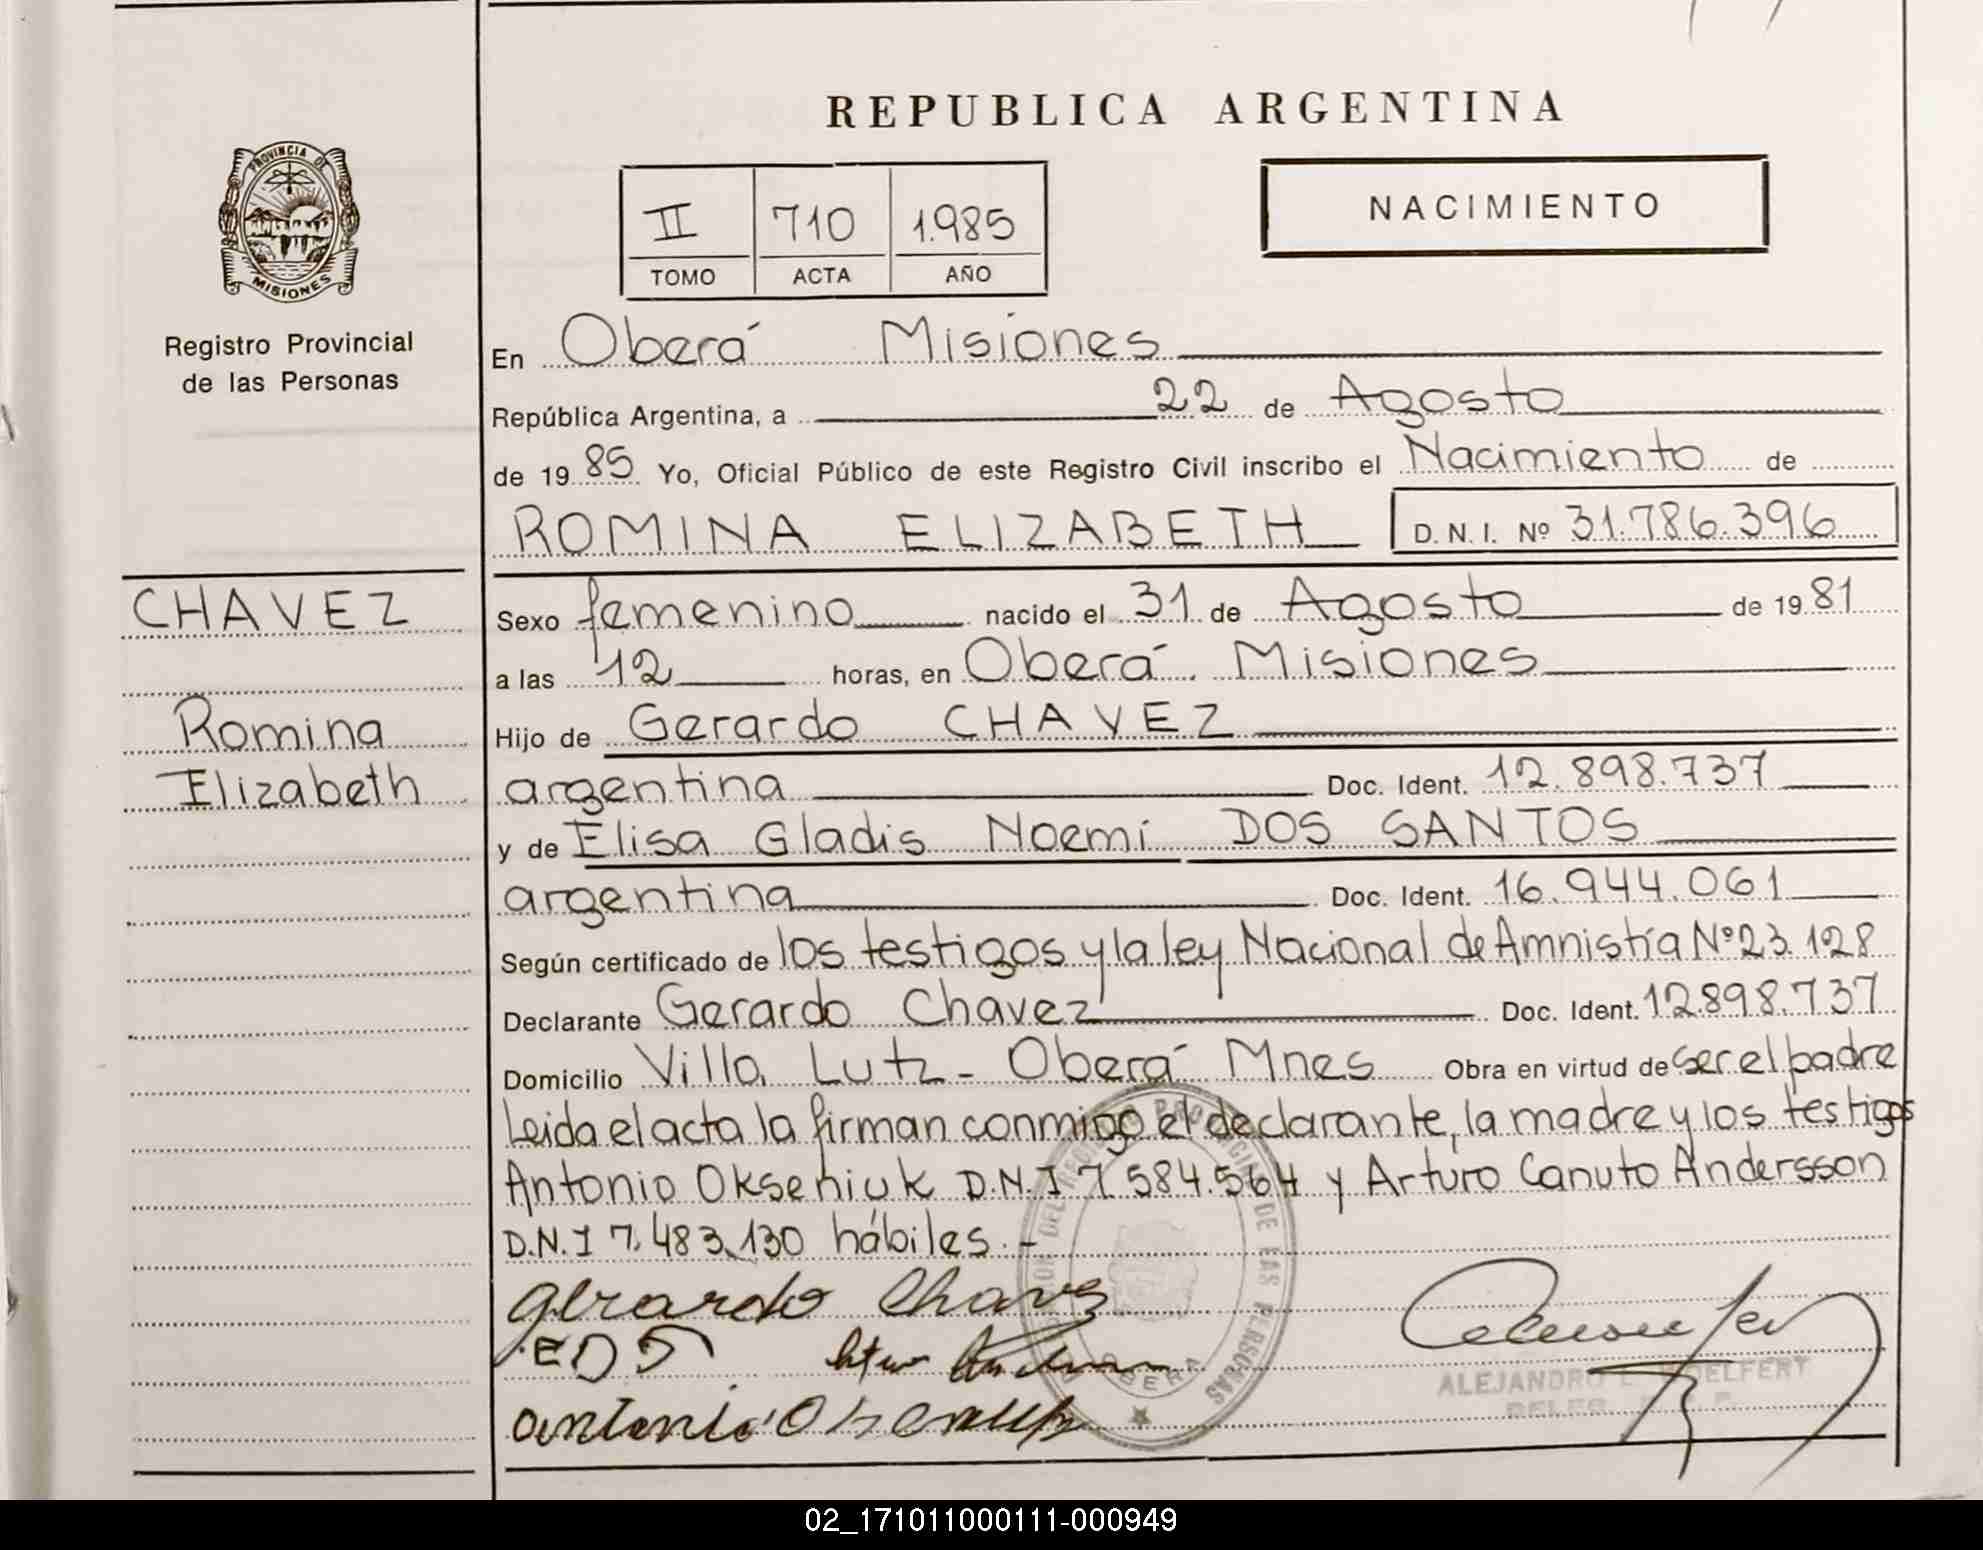 REPUBLICA ARGENTINA
PROVINCIA DE
MISIONES
Registro Provincial
de las Personas
II 710 1.985
TOMO ACTA AÑO
NACIMIENTO
En Oberá Misiones
República Argentina, a 22 de Agosto
de 19 85 Yo, Oficial Público de este Registro Civil inscribo el Nacimiento de
ROMINA ELIZABETH D.N.I. Nº 31.786.396
CHAVEZ
Romina
Elizabeth
Sexo femenino nacido el 31 de Agosto de 19 81
a las 12 horas, en Oberá. Misiones
Hijo de Gerardo CHAVEZ
argentina Doc. Ident. 12.898.737
y de Elisa Gladis Noemi DOS SANTOS
argentina Doc. Ident. 16.944.061
Según certificado de los testigos y la ley Nacional de Amnistía Nº 23.128
Declarante Gerardo Chavez Doc. Ident. 12.898.737
Domicilio Villa Lutz - Oberá Mnes Obra en virtud de ser el padre
Leida el acta la firman conmigo el declarante, la madre y los testigos
Antonio Oksehiuk D.N.I 7.584.564 y Arturo Canuto Andersson
D.N.I 7.483.130 hábiles.-
Gerardo Chavez
EDS
Antonio
ALEJANDRO
OBERA
02_171011000111-000949